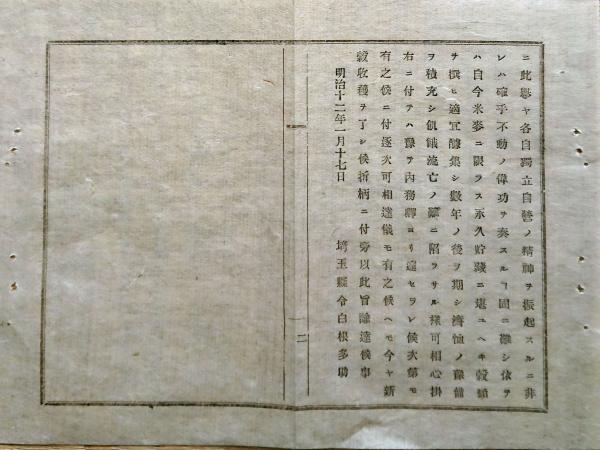 ニ此擧ヤ各自獨立自營ノ精神ヲ振起スルニ非
レハ確乎不動ノ偉功ヲ奏スルヿ固ニ難シ依テ
ハ自今米麥ニ限ラス永久貯藏ニ堪ユヘキ穀類
ヲ撰ヒ適宜醵集シ數年ノ後ヲ期シ濟恤ノ豫備
ヲ積充シ飢餓流亡ノ難ニ陷ラサル樣可相心掛
右ニ付テハ豫テ内務卿ヨリ達セラレ候次第モ
有之候ニ付逐次可相達儀モ有之候ヘモ今ヤ新
穀收穫ヲ了シ候折柄ニ付旁以此旨諭達候事
明治十二年一月十七日
埼玉縣令白根多助
二